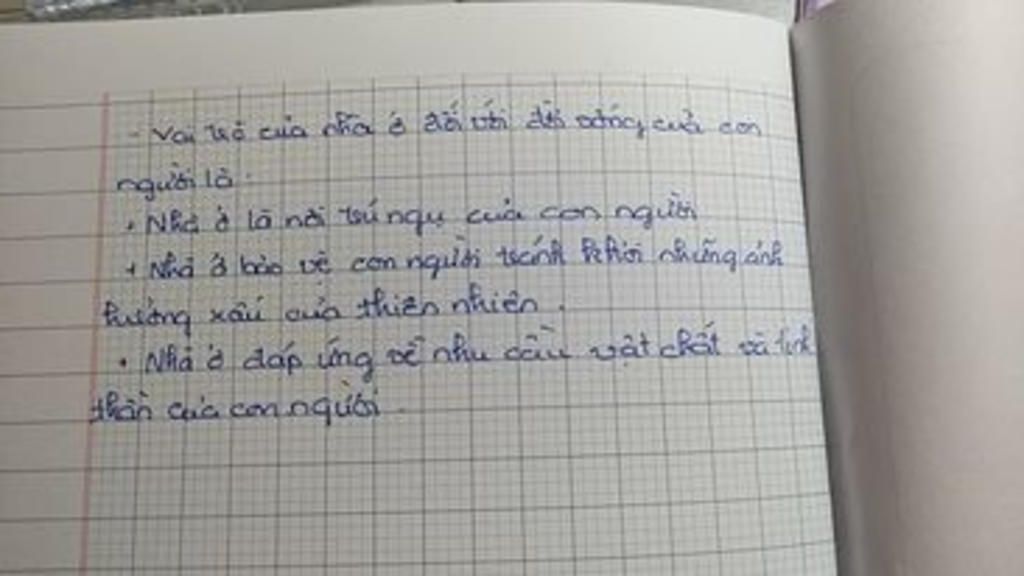 - Vai trò của nhà ở đối với đời sống của con
người là:
• Nhà ở là nơi trú ngụ của con người
+ Nhà ở bảo vệ con người tránh khỏi những ảnh
hưởng xấu của thiên nhiên.
• Nhà ở đáp ứng về nhu cầu vật chất và tinh
thần của con người.